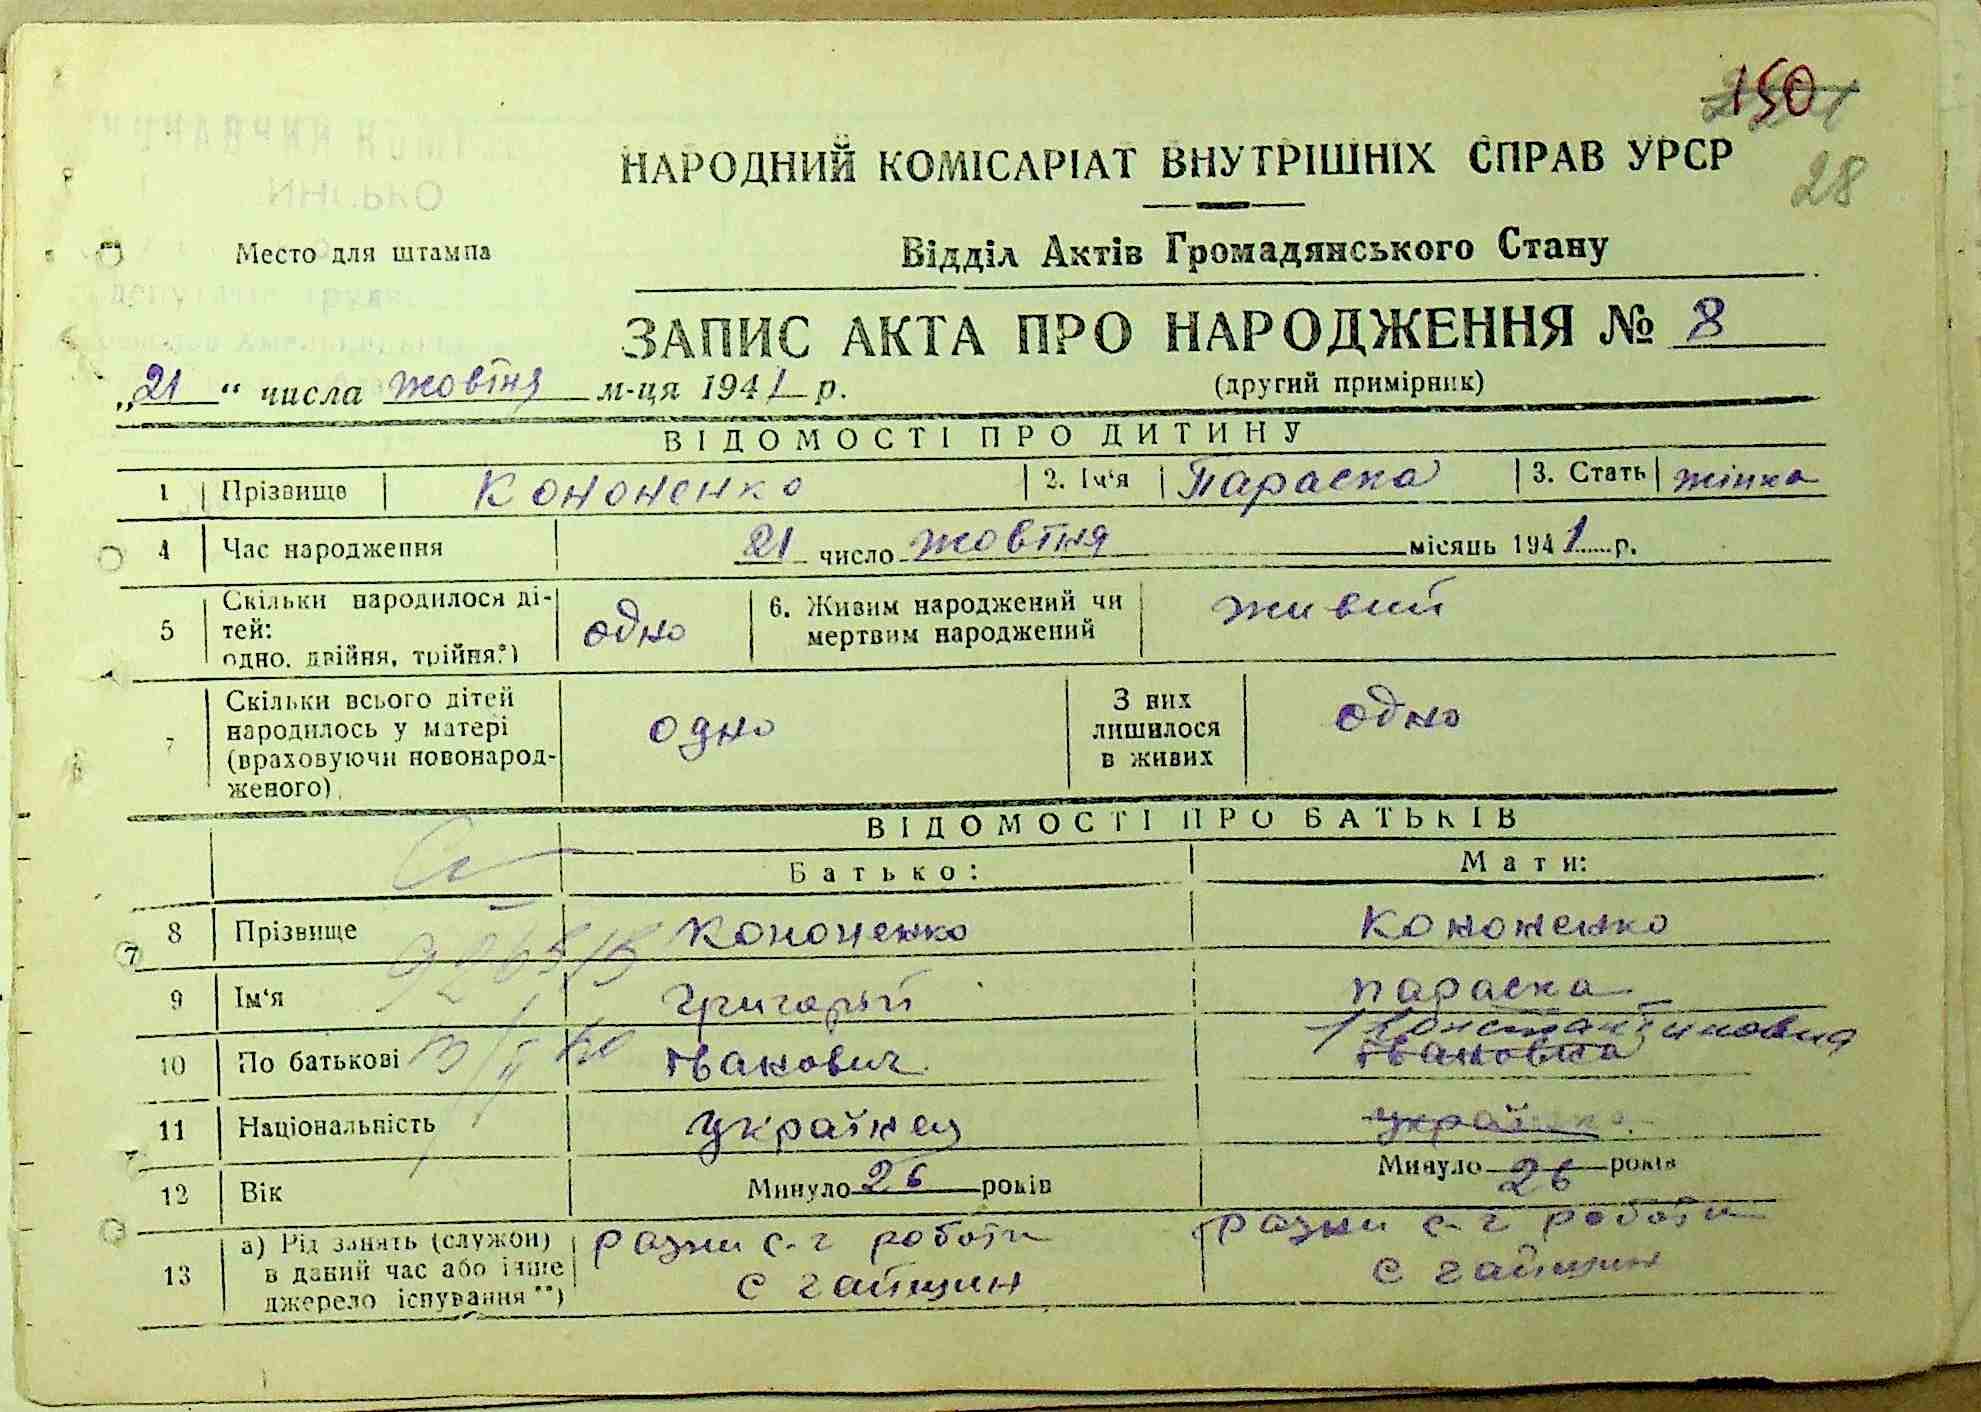 150
28
НАРОДНИЙ КОМІСАРІАТ ВНУТРІШНІХ СПРАВ УРСР
Место для штампа
Відділ Актів Громадянського Стану
ЗАПИС АКТА ПРО НАРОДЖЕННЯ № 8
„21“ числа жовтня м-ця 1941 р.
(другий примірник)
ВІДОМОСТІ ПРО ДИТИНУ
1 Прізвище Кононенко 2. Ім'я Параска 3. Стать жінка
4 Час народження 21 число жовтня місяць 1941 р.
5 Скільки народилося ді-
тей:
одно, двійня, трійня.*)
одно
6. Живим народжений чи
мертвим народжений
живий
7 Скільки всього дітей
народилось у матері
(враховуючи новонарод-
женого)
одно
З них
лишилося
в живих
одно
ВІДОМОСТІ ПРО БАТЬКІВ
Батько: Мати:
8 Прізвище Кононенко Кононенко
9 Ім'я Григорій параска
10 По батькові Іванович Івановна Константиновна
11 Національність українец українка
12 Вік Минуло 26 років Минуло 26 років
13 а) Рід занять (служби)
в даний час або інше
джерело існування **)
разни с-г роботи
с гайщин
разни с-г роботи
с гайщин